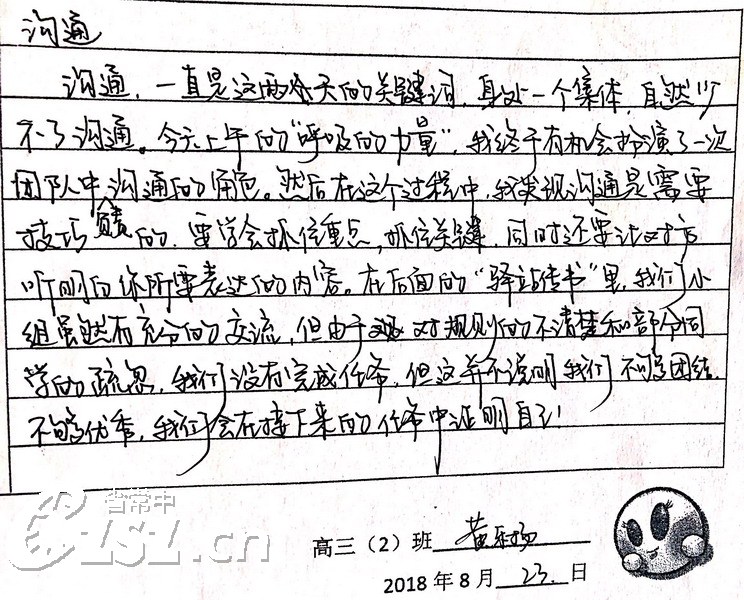 沟通
沟通，一直是这两天的关键词，身处一个集体，自然少
不了沟通。今天上午的“呼吸的力量”，我终于有机会扮演了一次
团队中沟通的角色。然后在这个过程中，我发现沟通是需要
技巧的，要学会抓住重点，抓住关键，同时还要让对方
听明白你所要表达的内容。在后面的“驿站传书”里，我们小
组虽然有充分的交流，但由于对规则的不清楚和部分同
学的疏忽，我们没有完成任务，但这并不说明我们不够团结，
不够优秀，我们会在接下来的任务中证明自己！
省常中
CZSZ.cn
高三（2）班 黄
2018年8月 23. 日